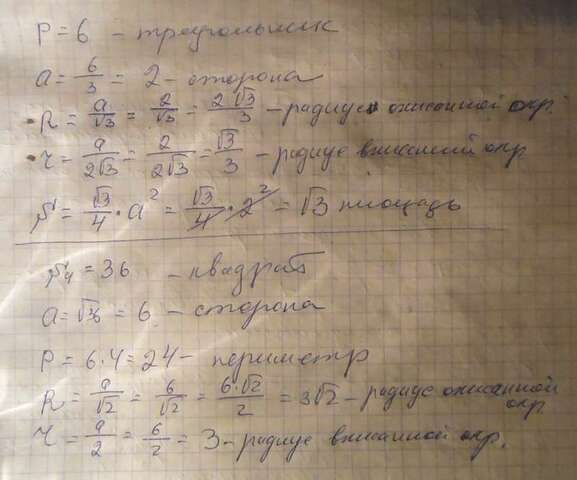 P = 6 - треугольник
a = 6/3 = 2 - сторона
R = a/√3 = 2/√3 = 2√3/3 - радиус описанной окр.
r = a/2√3 = 2/2√3 = √3/3 - радиус вписанной окр
S = √3/4 · a² = √3/4 · 2² = √3 площадь
S₄ = 36 - квадрат
a = √36 = 6 - сторона
P = 6·4 = 24 - периметр
R = a/√2 = 6/√2 = 6·√2/2 = 3√2 - радиус описанной окр
r = a/2 = 6/2 = 3 - радиус вписанной окр.